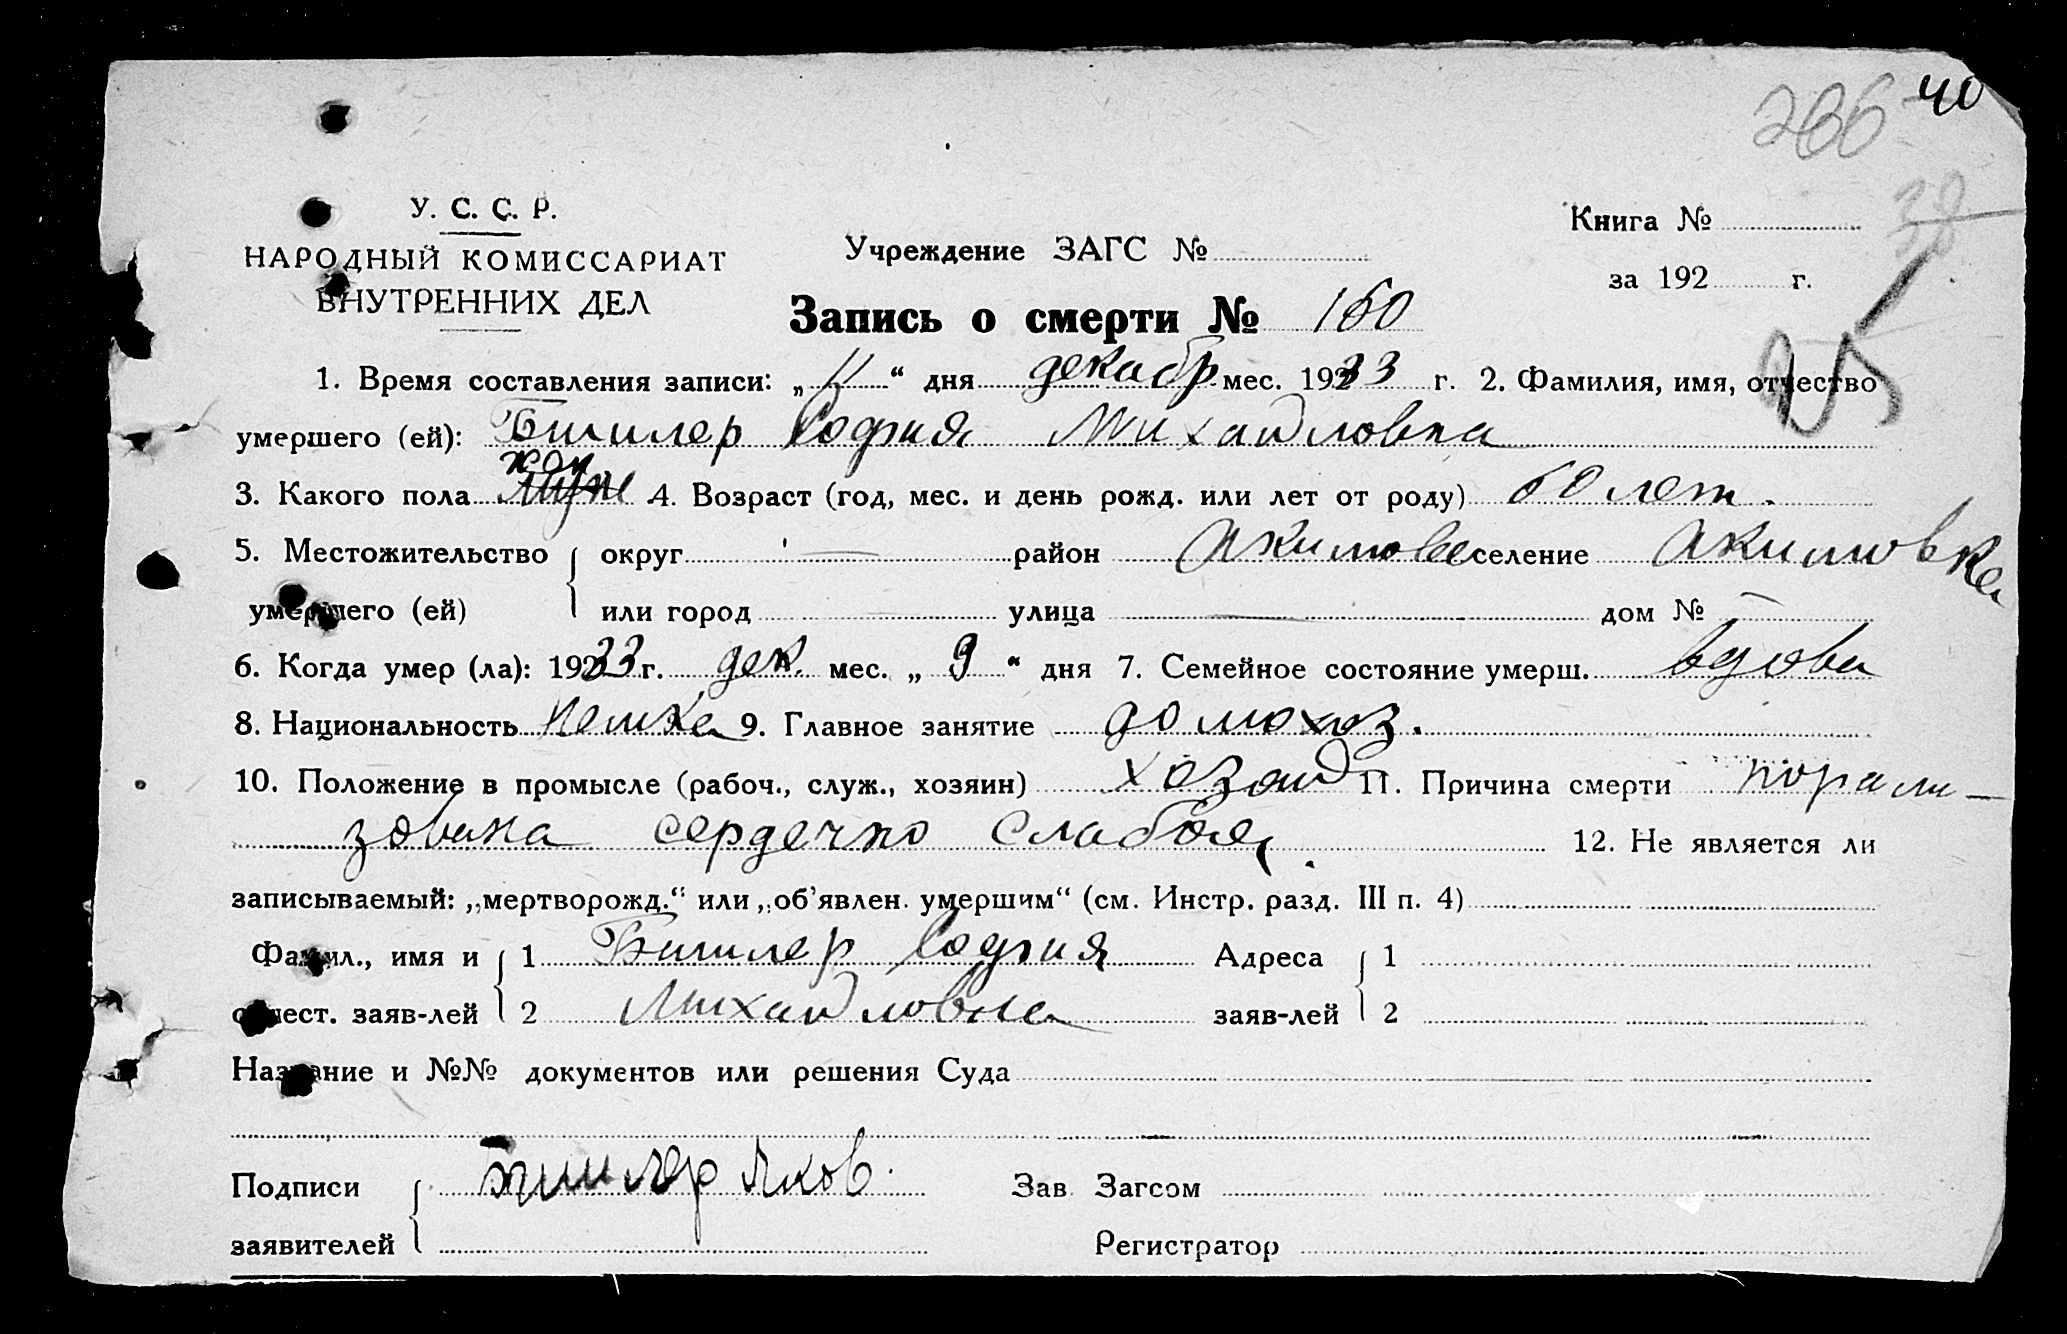 266 40
У. С. С. Р.
НАРОДНЫЙ КОМИССАРИАТ
ВНУТРЕННИХ ДЕЛ
Учреждение ЗАГС №
Книга №
за 192 г.
Запись о смерти № 160
1. Время составления записи: „11“ дня декабр. мес. 1933 г. 2. Фамилия, имя, отчество
умершего (ей): Бишлер София Михайловна
3. Какого пола жен. 4. Возраст (год, мес. и день рожд. или лет от роду) 60 лет.
5. Местожительство округ — район Акимове селение Акимовка
умершего (ей) или город — улица — дом № —
6. Когда умер (ла): 1933 г. дек. мес. „9“ дня 7. Семейное состояние умерш. вдова
8. Национальность Немка 9. Главное занятие домохоз.
10. Положение в промысле (рабоч., служ., хозяин) хозяй 11. Причина смерти порали-
зована сердечно слабая.
12. Не является ли
записываемый: „мертворожд.“ или „об'явлен. умершим“ (см. Инстр. разд. III п. 4)
Фамил., имя и 1 Бишлер София Адреса 1
отчест. заяв-лей 2 Михайловна заяв-лей 2
Название и №№ документов или решения Суда
Подписи Бишлер Яков. Зав. Загсом
заявителей Регистратор